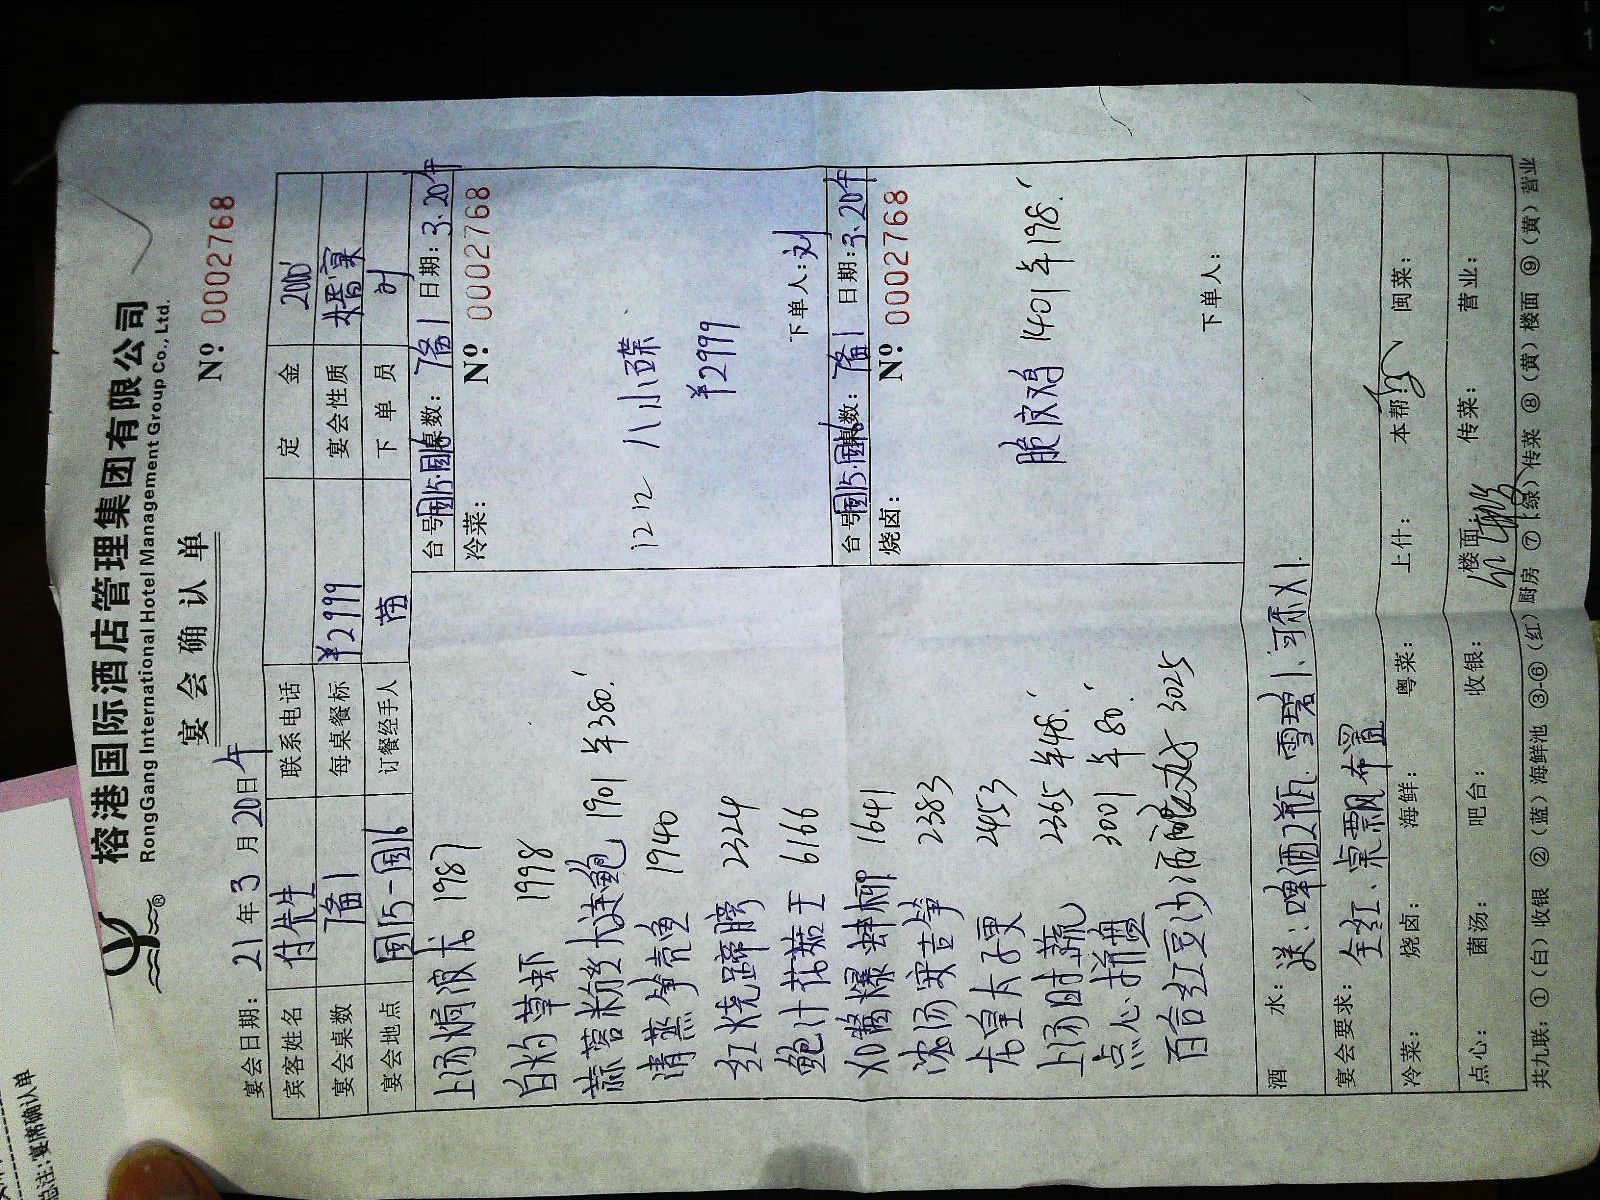 榕港国际酒店管理集团有限公司
RongGang International Hotel Management Group Co., Ltd.
®
宴会确认单
№ 0002768
宴会日期: 21年3月20日午
宾客姓名 付先生 联系电话 定金 2000
宴会桌数 7备1 每桌餐标 ¥2999 宴会性质 婚宴
宴会地点 国15-国16 订餐经手人 苗 下单员 刘
上汤焗波龙 1987
白灼草虾 1998
蒜蓉粉丝大连鲍 1901 半380.
清蒸笋壳鱼 1940
红烧蹄膀 2324
鲍汁花菇王 6166
XO酱爆蚌柳 1641
浓汤双吉笋 2383
龙皇太子更 2453
上汤时蔬 2365 半48.
点心拼盘 3001 半80.
百合红豆沙 酒酿丸子 3025
台号国15.国16桌数: 7备1 日期: 3.20午
冷菜: № 0002768
1212 八小碟
¥2999
下单人: 刘
台号国15.国16桌数: 7备1 日期: 3.20午
烧卤: № 0002768
脆皮鸡 1401 半198.
下单人:
酒水: 送:啤酒2瓶、雪碧1、可乐X1.
宴会要求: 全红、桌飘布置
冷菜: 烧卤: 海鲜: 粤菜: 上什: 本帮: 闽菜:
点心: 菌汤: 吧台: 收银: 楼面: 传菜: 营业:
共九联: ①(白)收银 ②(蓝)海鲜池 ③-⑥(红)厨房 ⑦(绿)传菜 ⑧(黄)楼面 ⑨(黄)营业
总注:宴席确认单